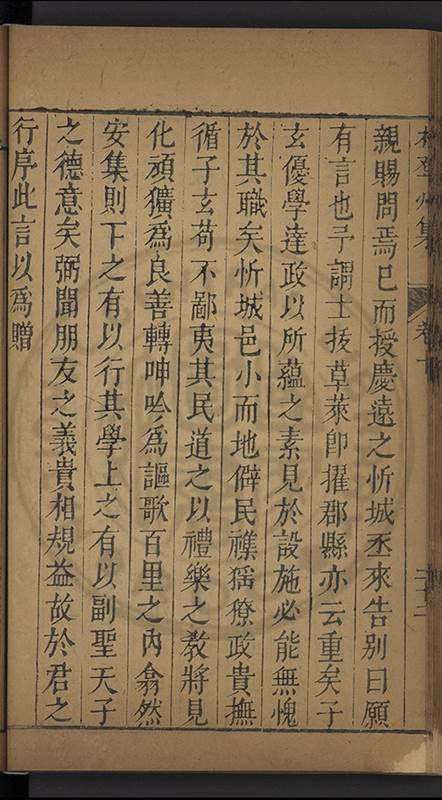 親賜問焉已而授慶遠之忻城丞來告别曰願
有言也予謂士拔草萊卽擢郡縣亦云重矣子
玄優學達政以所蘊之素見於設施必能無愧
於其職矣忻城邑小而地僻民襍猺獠政貴撫
循子玄苟不鄙夷其民道之以禮樂之教將見
化頑獷爲良善轉呻吟爲謳歌百里之內翕然
安集則下之有以行其學上之有以副聖天子
之德意矣弼聞朋友之義貴相規益故於君之
行序此言以爲贈